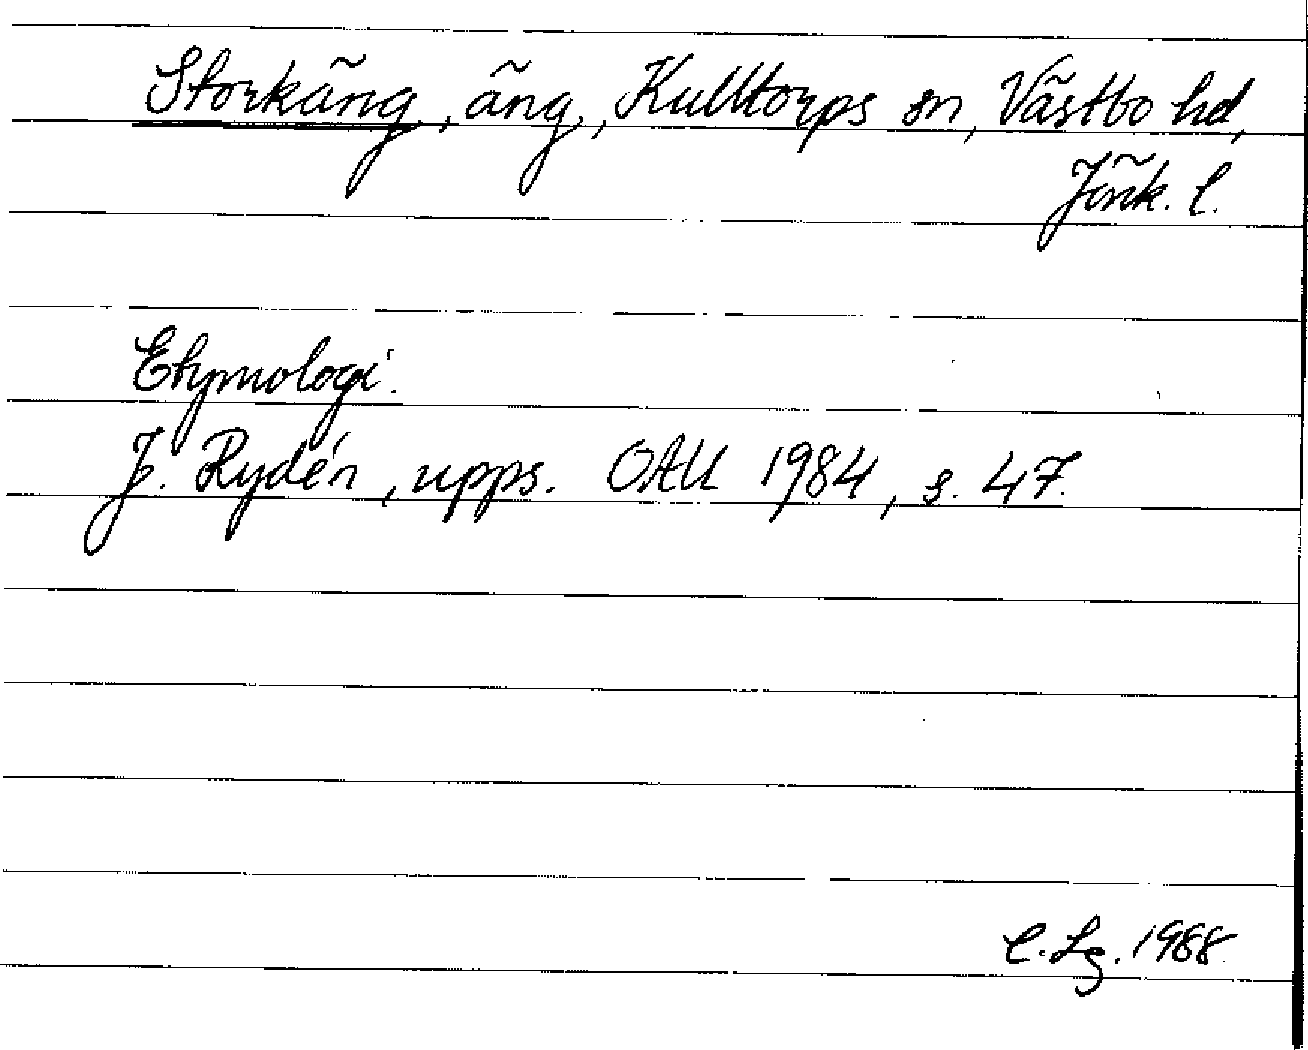 Storkäng, äng, Kulltorps sn, Västbo hd,
Jönk. l.
Etymologi.
J. Rydén, upps. OAU 1984, s. 47.
C. Lg. 1988